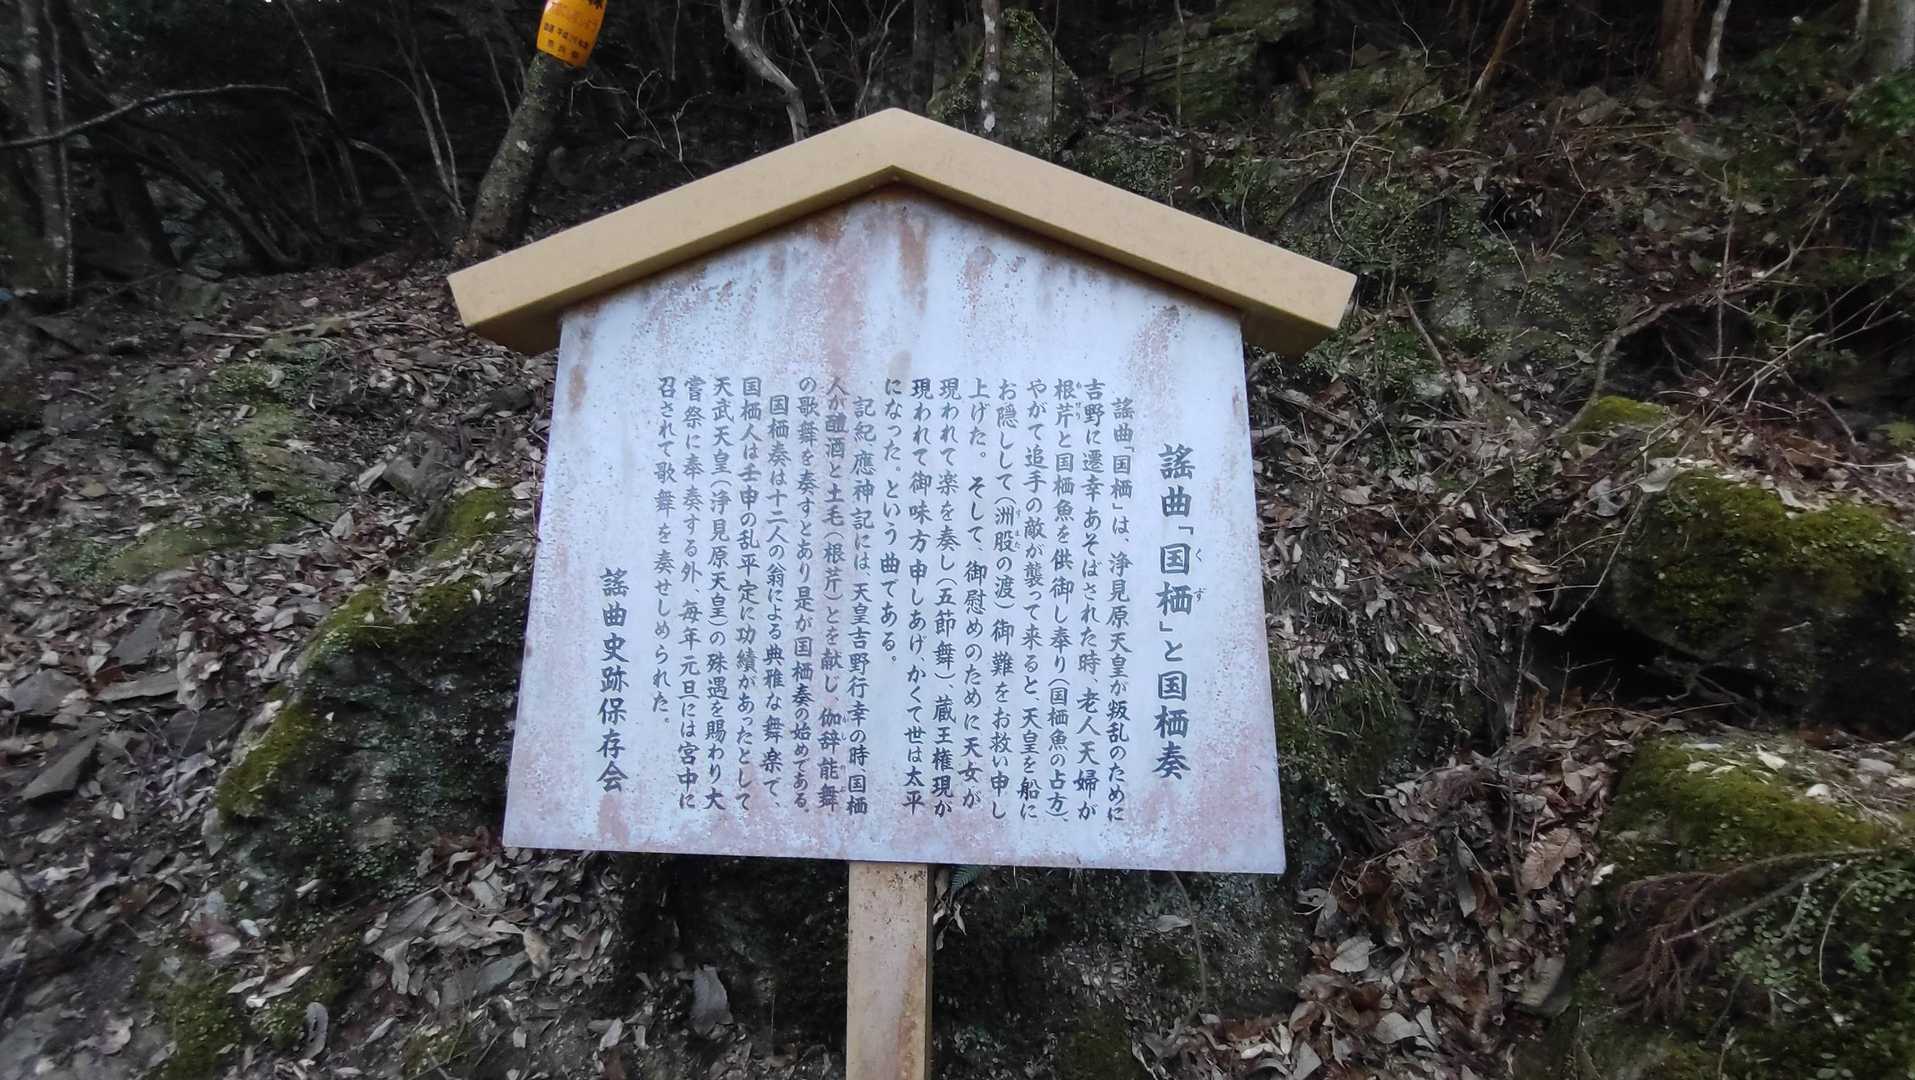 謡曲「国栖」と国栖奏
謡曲「国栖」は、浄見原天皇が叛乱のために
吉野に遷幸あそばされた時、老人夫婦が
根芹と国栖魚を供御し奉り(国栖魚の占方)
やがて追手の敵が襲って来ると、天皇を船に
お隠しして(洲股の渡)御難をお救い申し
上げた。そして、御慰めのために天女が
現われて楽を奏し(五節舞)蔵王権現が
現われて御味方申しあげ、かくて世は太平
になった。という曲である。
記紀應神記には、天皇吉野行幸の時国栖
人が醴酒と土毛(根芹)とを献じ、伽辞能舞
の歌舞を奏すとあり是が国栖奏の始めである。
国栖奏は十二人の翁による典雅な舞楽で、
国栖人は壬申の乱平定に功績があったとして
天武天皇(浄見原天皇)の殊遇を賜わり大
嘗祭に奉奏する外、毎年元旦には宮中に
召されて歌舞を奏せしめられた。
謡曲史跡保存会